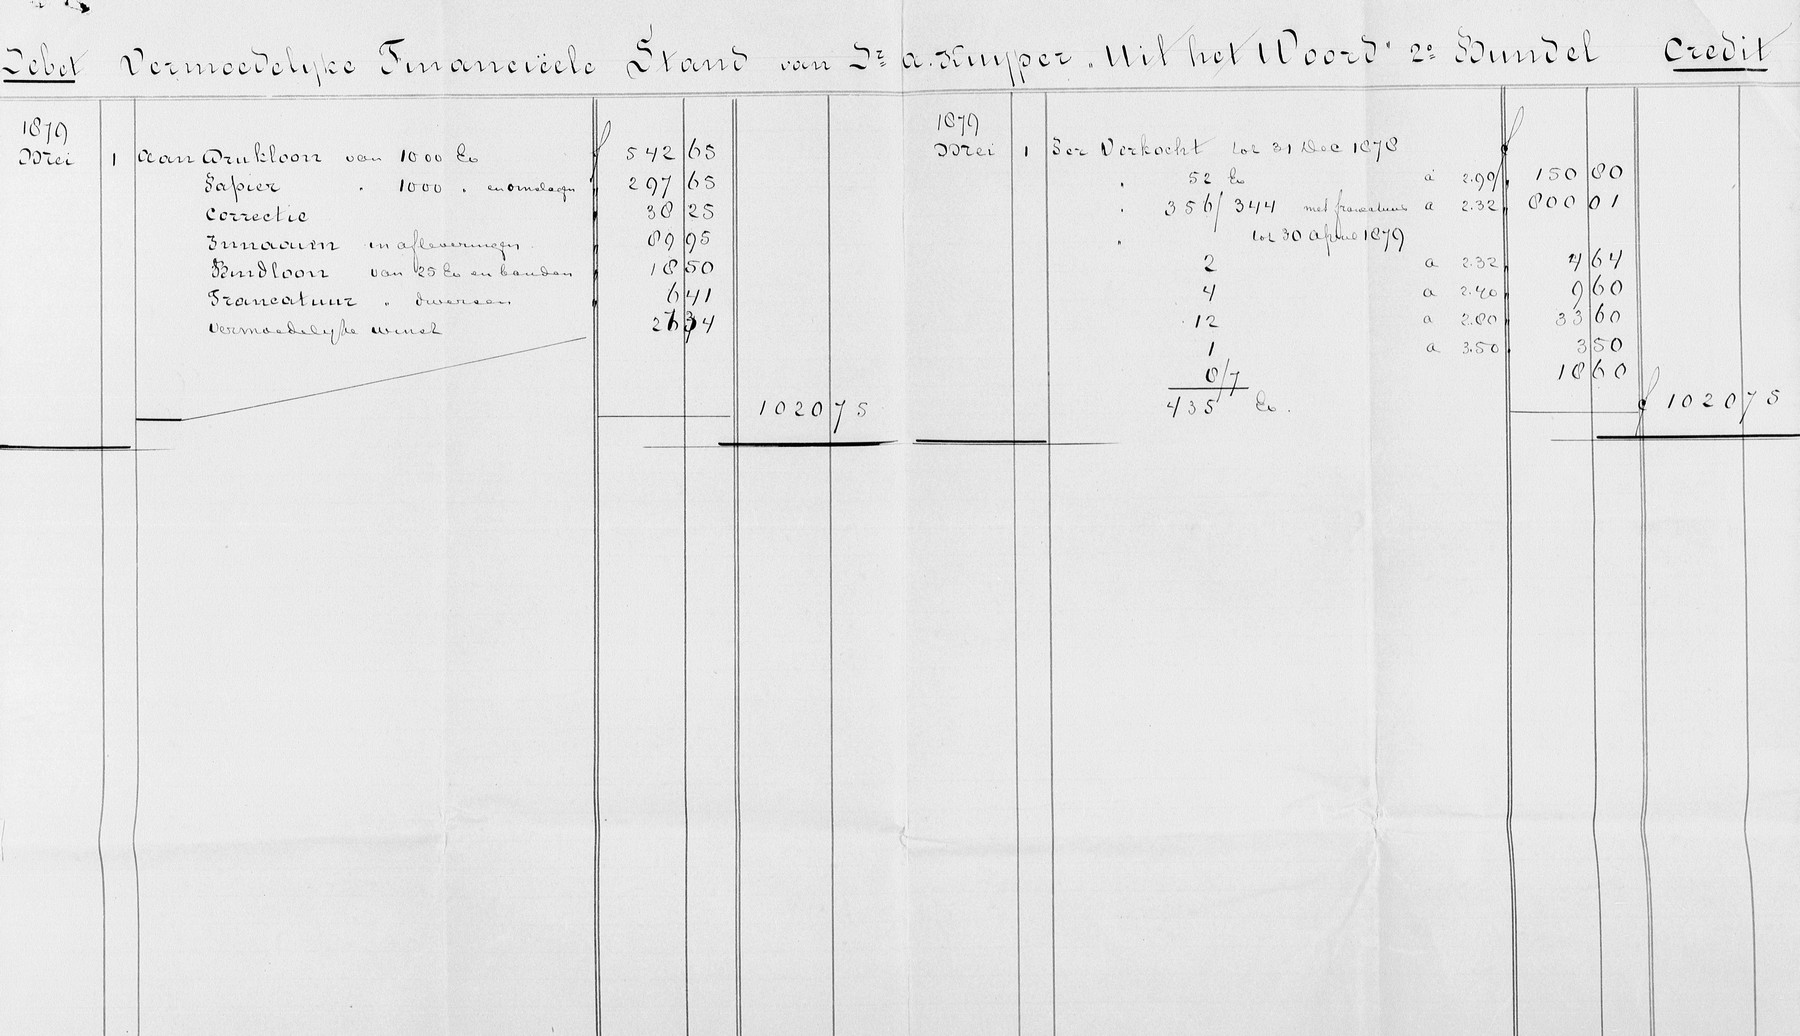 Debet Vermoedelyke Financieële Stand van Dr. A. Kuyper „Uit het Woord" 2e Bundel Credit
1879
Mei 1 Aan Drukloon van 1000 Ex f 542 65
Papier " 1000 " en omslagen " 297 65
Correctie " 38 25
Innaaien in afleveringen " 89 95
Bindloon van 25 Ex en banden " 18 50
Francatuur " diversen " 6 41
Vermoedelyke winst 27 34
1020 75
1879
Mei 1 Per Verkocht tot 31 Dec 1878 f
" 52 Ex à 2.90 " 150 80
" 356/344 met francatuur a 2.32 " 800 01
" tot 30 April 1879
2 a 2.32 " 4 64
4 a 2.40 " 9 60
12 a 2.80 " 33 60
1 a 3.50 " 3 50
8/7 18 60
435 Ex. f 1020 75